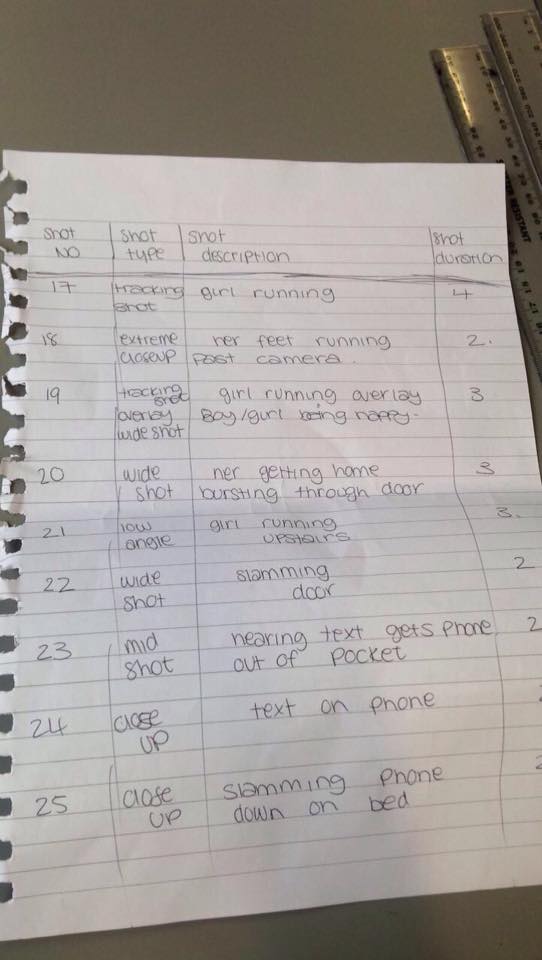 shot NO | shot type | shot description | shot duration
17 | tracking shot | girl running | 4
18 | extreme closeup | her feet running past camera. | 2.
19 | tracking shot overlay wide shot | girl running overlay Boy/girl being happy. | 3
20 | wide shot | her getting home bursting through door | 3
21 | low angle | girl running upstairs | 3.
22 | wide shot | slamming door | 2
23 | mid shot | hearing text gets phone out of pocket | 2
24 | close UP | text on phone
25 | close UP | slamming phone down on bed